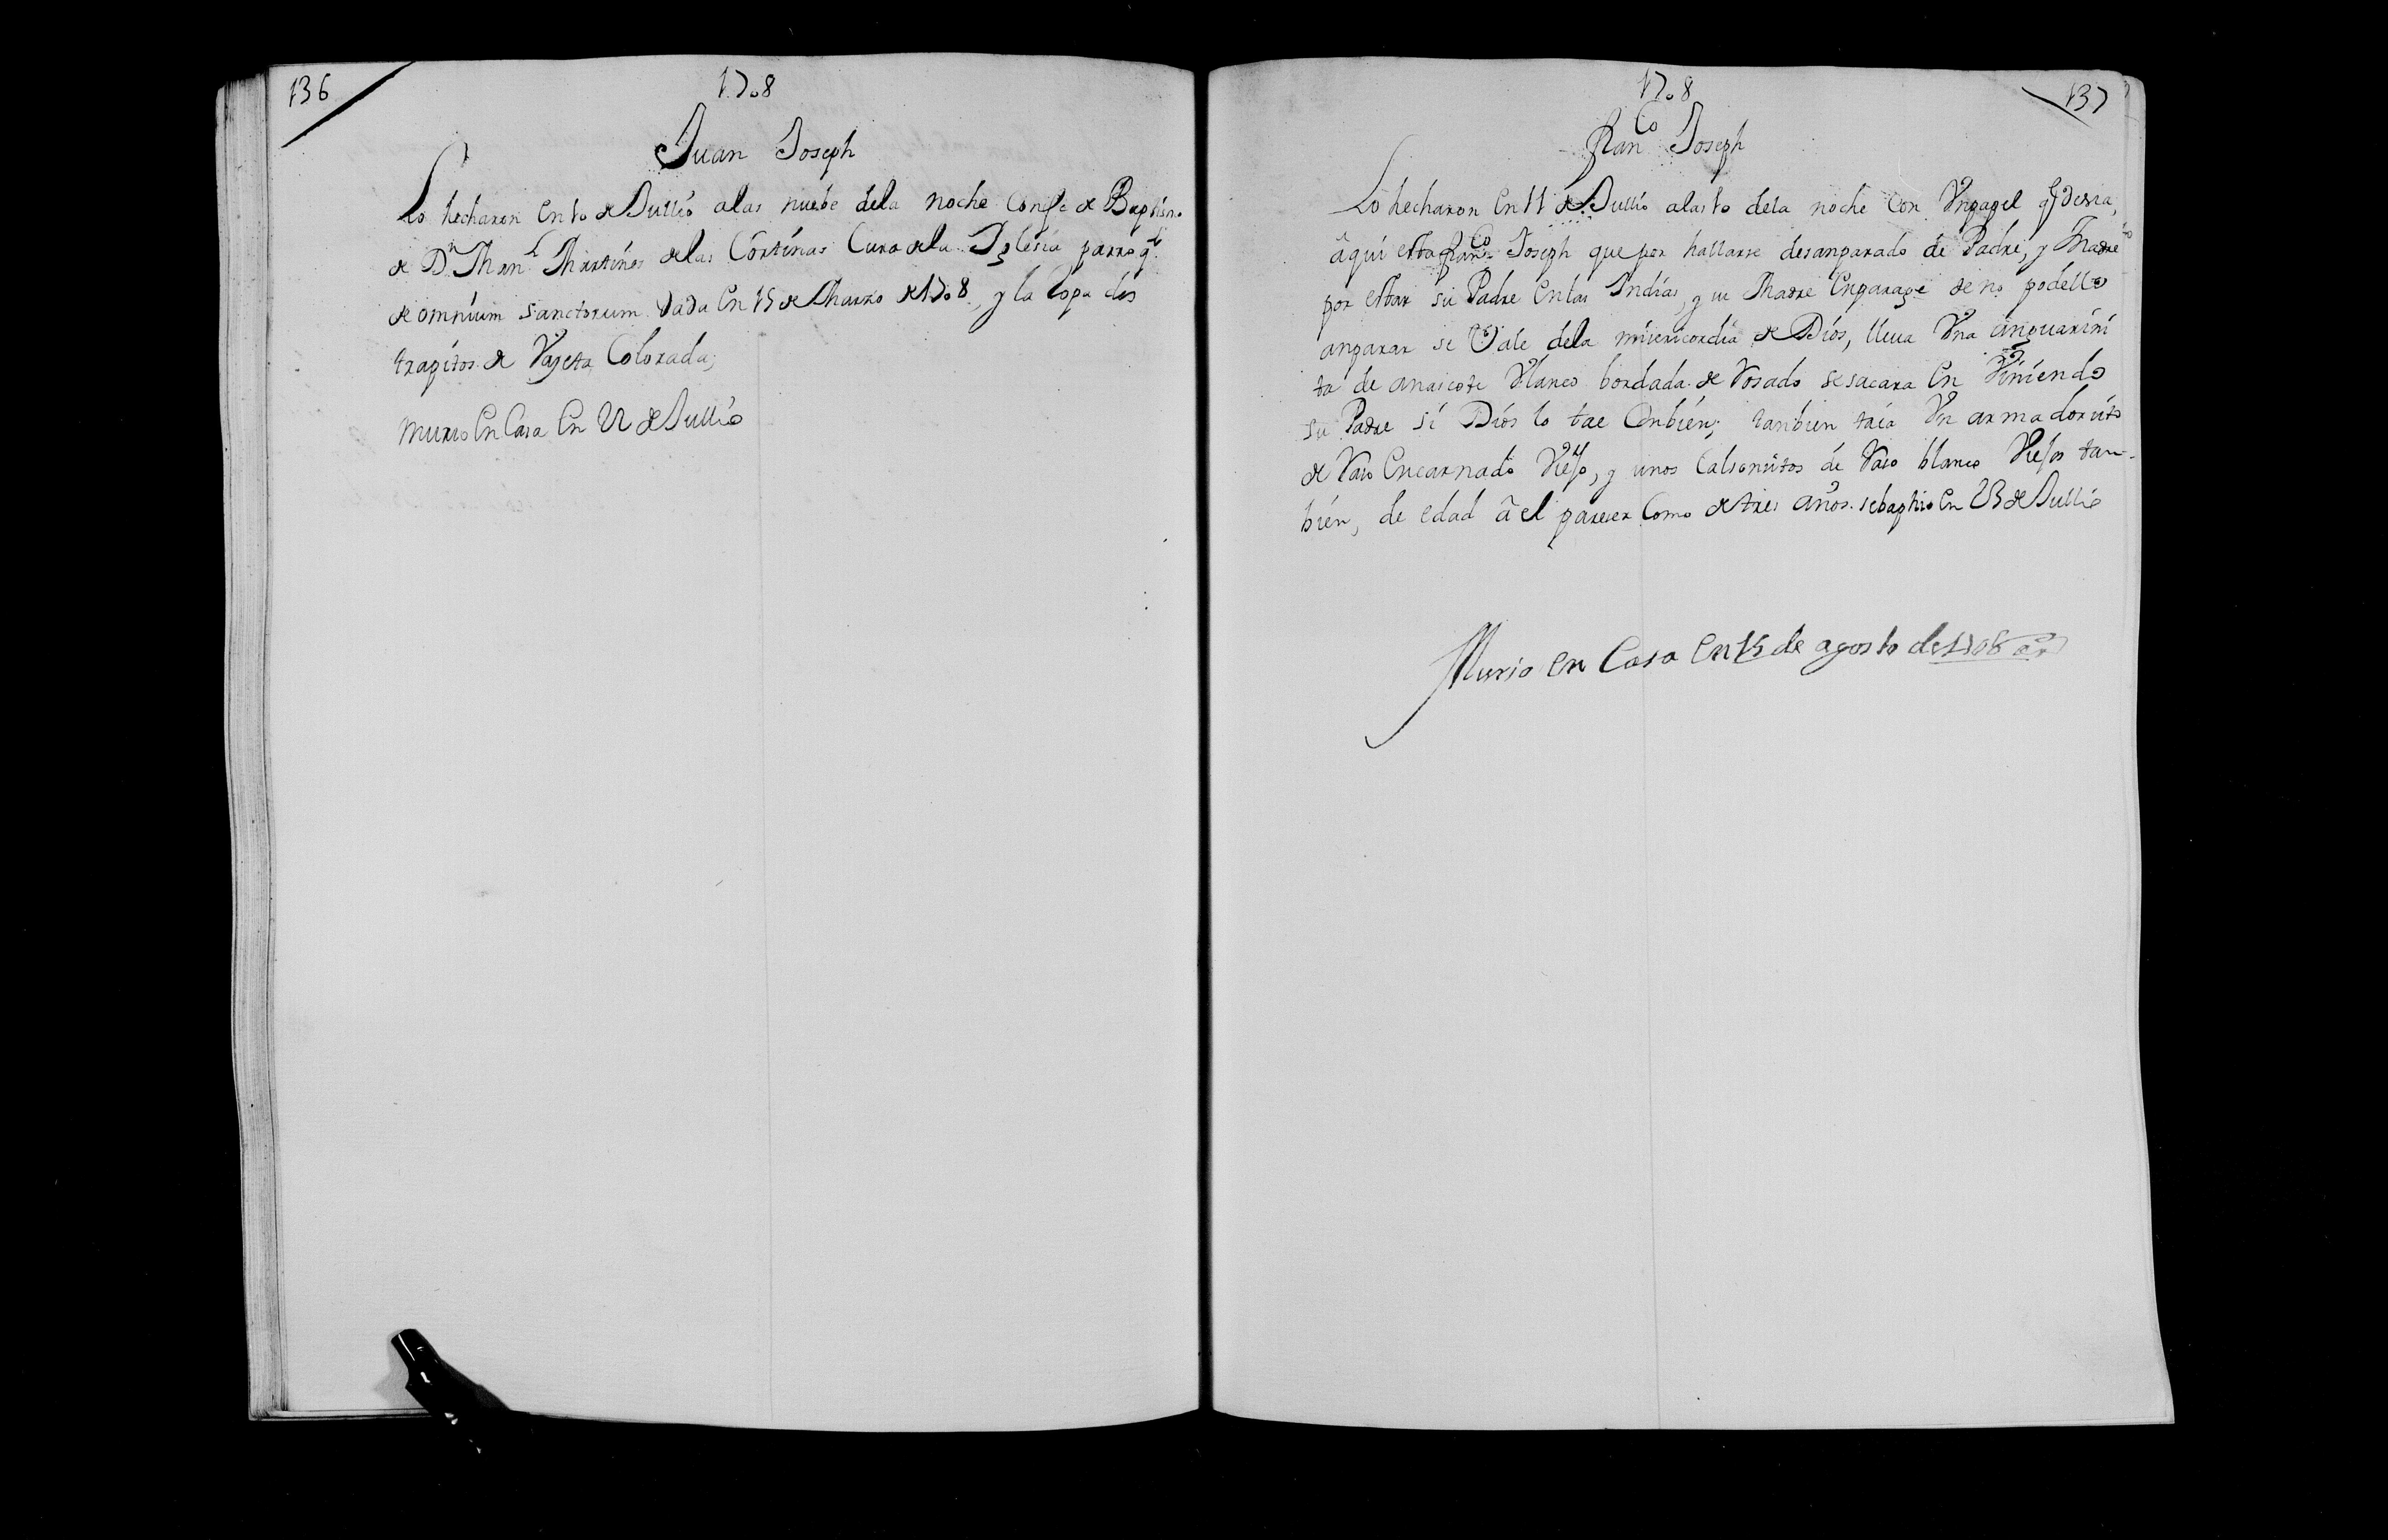 136
1708
Juan Joseph
Lo hecharon en 10 de Jullio a las nuebe dela noche con fe de Baptism.
de Dn Manl Martines delas Cortinas Cura dela Iglesia parroql
de omnium sanctorum dada en 15 de Marzo de 1708, y la Ropa dos
trapitos de Vayeta Colorada;
murio En Casa En 22 de Jullio
137
1708
Franco Joseph
Lo hecharon en 11 de Jullio a las 10 dela noche con Vn papel q desia,
âqui esta Franco Joseph que por hallarse desanparado de Padre, y Madre
por estar su Padre en las Indias, y su Madre En parage de no podello
anparar se Vale dela misericordia de Dios, lleua Vna anguarini
ta de anascote Blanco bordada de Rosado se sacara en Viniendo
su Padre si Dios lo tae Con bien; tanbien traia Vn armadorsito
de Raso Encarnado Viejo, y unos Calsonsitos de Raso blanco Viejos tan-
bien, de edad â el pareser Como de tres años. se baptiso en 23 de Jullio
Murio en Casa en 15 de agosto de 1708